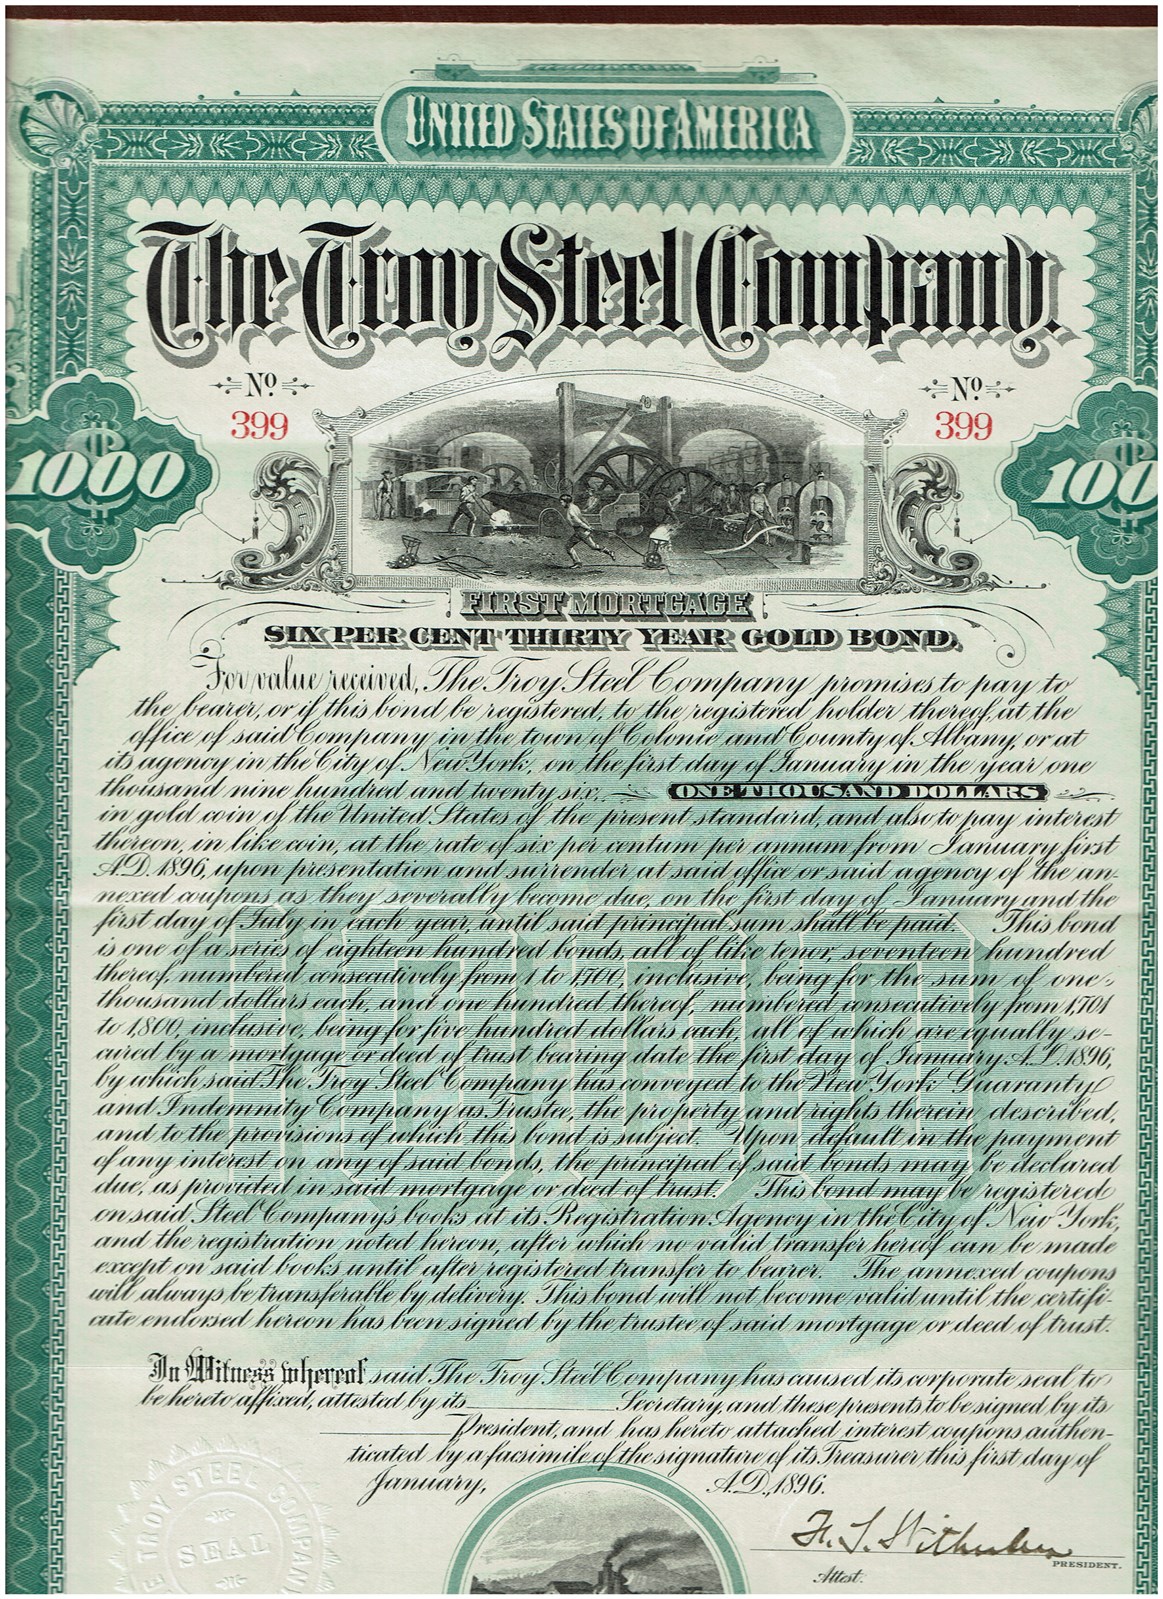 UNITED STATES OF AMERICA
The Troy Steel Company.
No
399
No
399
$1000
$100
FIRST MORTGAGE
SIX PER CENT THIRTY YEAR GOLD BOND.
For value received, The Troy Steel Company promises to pay to
the bearer, or if this bond be registered, to the registered holder thereof, at the
office of said Company in the town of Colonie and County of Albany, or at
its agency in the City of New York, on the first day of January in the year one
thousand nine hundred and twenty six, ONE THOUSAND DOLLARS
in gold coin of the United States of the present standard, and also to pay interest
thereon, in like coin, at the rate of six per centum per annum from January first
A.D. 1896, upon presentation and surrender at said office or said agency of the an-
nexed coupons as they severally become due, on the first day of January and the
first day of July in each year, until said principal sum shall be paid. This bond
is one of a series of eighteen hundred bonds, all of like tenor, seventeen hundred
thereof, numbered consecutively from 1 to 1,700, inclusive, being for the sum of one
thousand dollars each, and one hundred thereof, numbered consecutively from 1,701
to 1,800, inclusive, being for five hundred dollars each, all of which are equally se-
cured by a mortgage or deed of trust bearing date the first day of January, A.D. 1896,
by which said The Troy Steel Company has conveyed to the New York Guaranty
and Indemnity Company as Trustee, the property and rights therein described,
and to the provisions of which this bond is subject. Upon default in the payment
of any interest on any of said bonds, the principal of said bonds may be declared
due, as provided in said mortgage or deed of trust. This bond may be registered
on said Steel Company's books at its Registration Agency in the City of New York,
and the registration noted hereon, after which no valid transfer hereof can be made
except on said books until after registered transfer to bearer. The annexed coupons
will always be transferable by delivery. This bond will not become valid until the certifi-
cate endorsed hereon has been signed by the trustee of said mortgage or deed of trust.
In Witness whereof said The Troy Steel Company has caused its corporate seal to
be hereto affixed, attested by its Secretary, and these presents to be signed by its
President, and has hereto attached interest coupons authen-
ticated by a facsimile of the signature of its Treasurer this first day of
January, A.D., 1896.
TROY STEEL COMPANY
SEAL
PRESIDENT.
Attest.